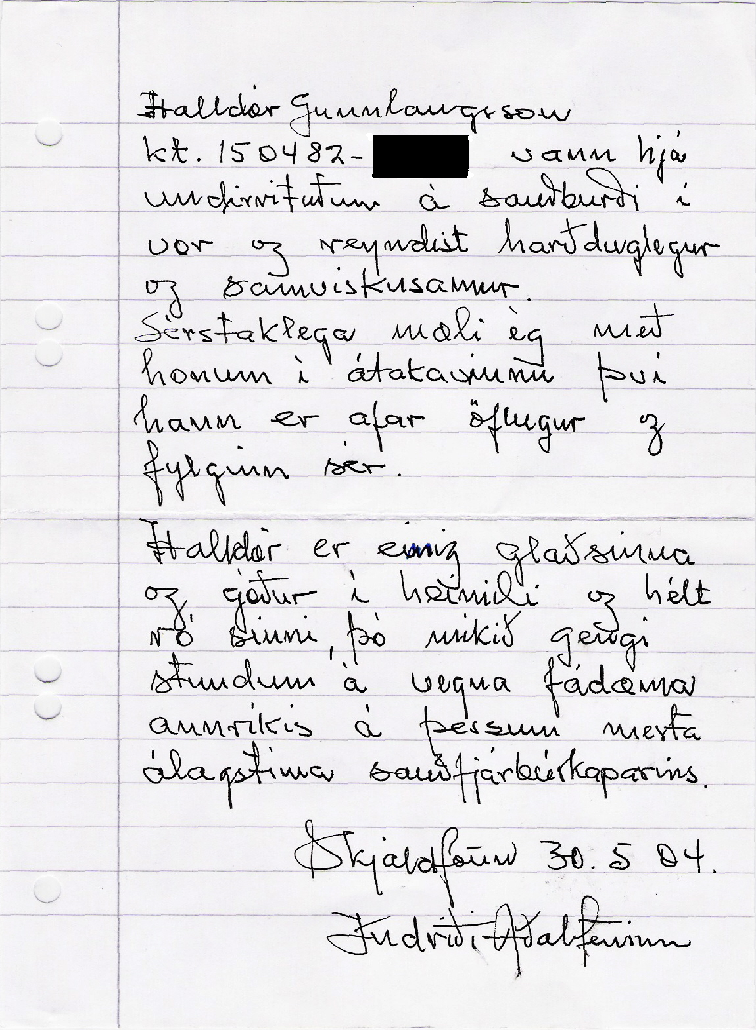 Halldór Gunnlaugsson
kt. 150482- vann hjá
undirrituðum á sauðburði í
vor og reyndist harðduglegur
og samviskusamur.
Sérstaklega mæli ég með
honum í átakavinnu því
hann er afar öflugur og
fylginn sér.
Halldór er einnig glaðsinna
og góður í heimili og hélt
ró sinni, þó mikið gengi
stundum á vegna fádæma
annríkis á þessum mesta
álagstíma sauðfjárbúskaparins.
Skjaldfönn 30. 5 04.
Indriði Aðalsteinsson